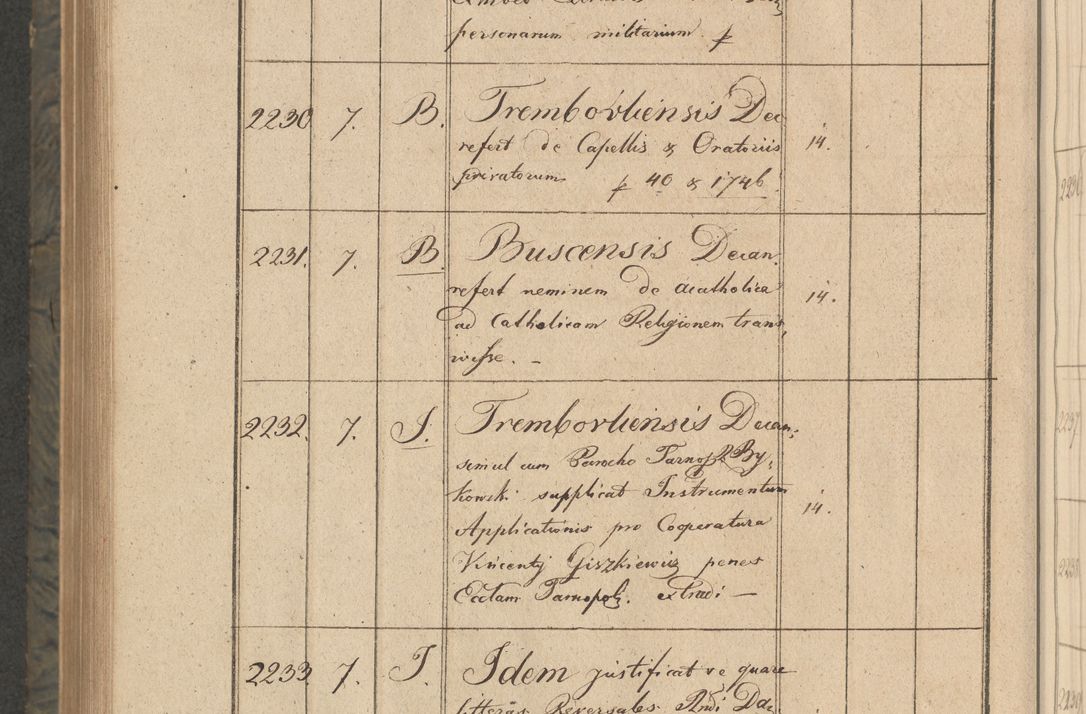 personarum militarium. p
2230 7. B. Trembovliensis Dec
refert de Capellis & Oratoriis 14.
privatorum p 40 & 1746.
2231. 7. B. Buscensis Decan.
refert neminem de acatholica 14.
ad Catholicam Religionem trans,
ivisse. –
2232. 7. J. Trembovliensis Decan,
simul cum Parocho Tarnop. By,
kowski supplicat Instrumentum
Applicationis pro Cooperatura 14.
Vincentÿ Giszkiewicz penes
Ecclam Tarnopol. extradi —
2233 7. J. Idem justificat se quare
litteras Reversales Rndi